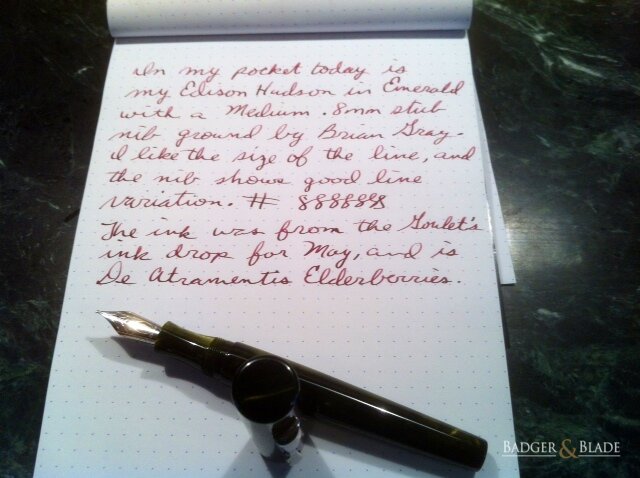 In my pocket today is
my Edison Hudson in Emerald
with a Medium .8mm stub
nib ground by Brian Gray.
I like the size of the line, and
the nib shows good line
variation. # 888888
The ink was from the Goulet's
ink drop for May, and is
De Atramentis Elderberries.
BADGER & BLADE